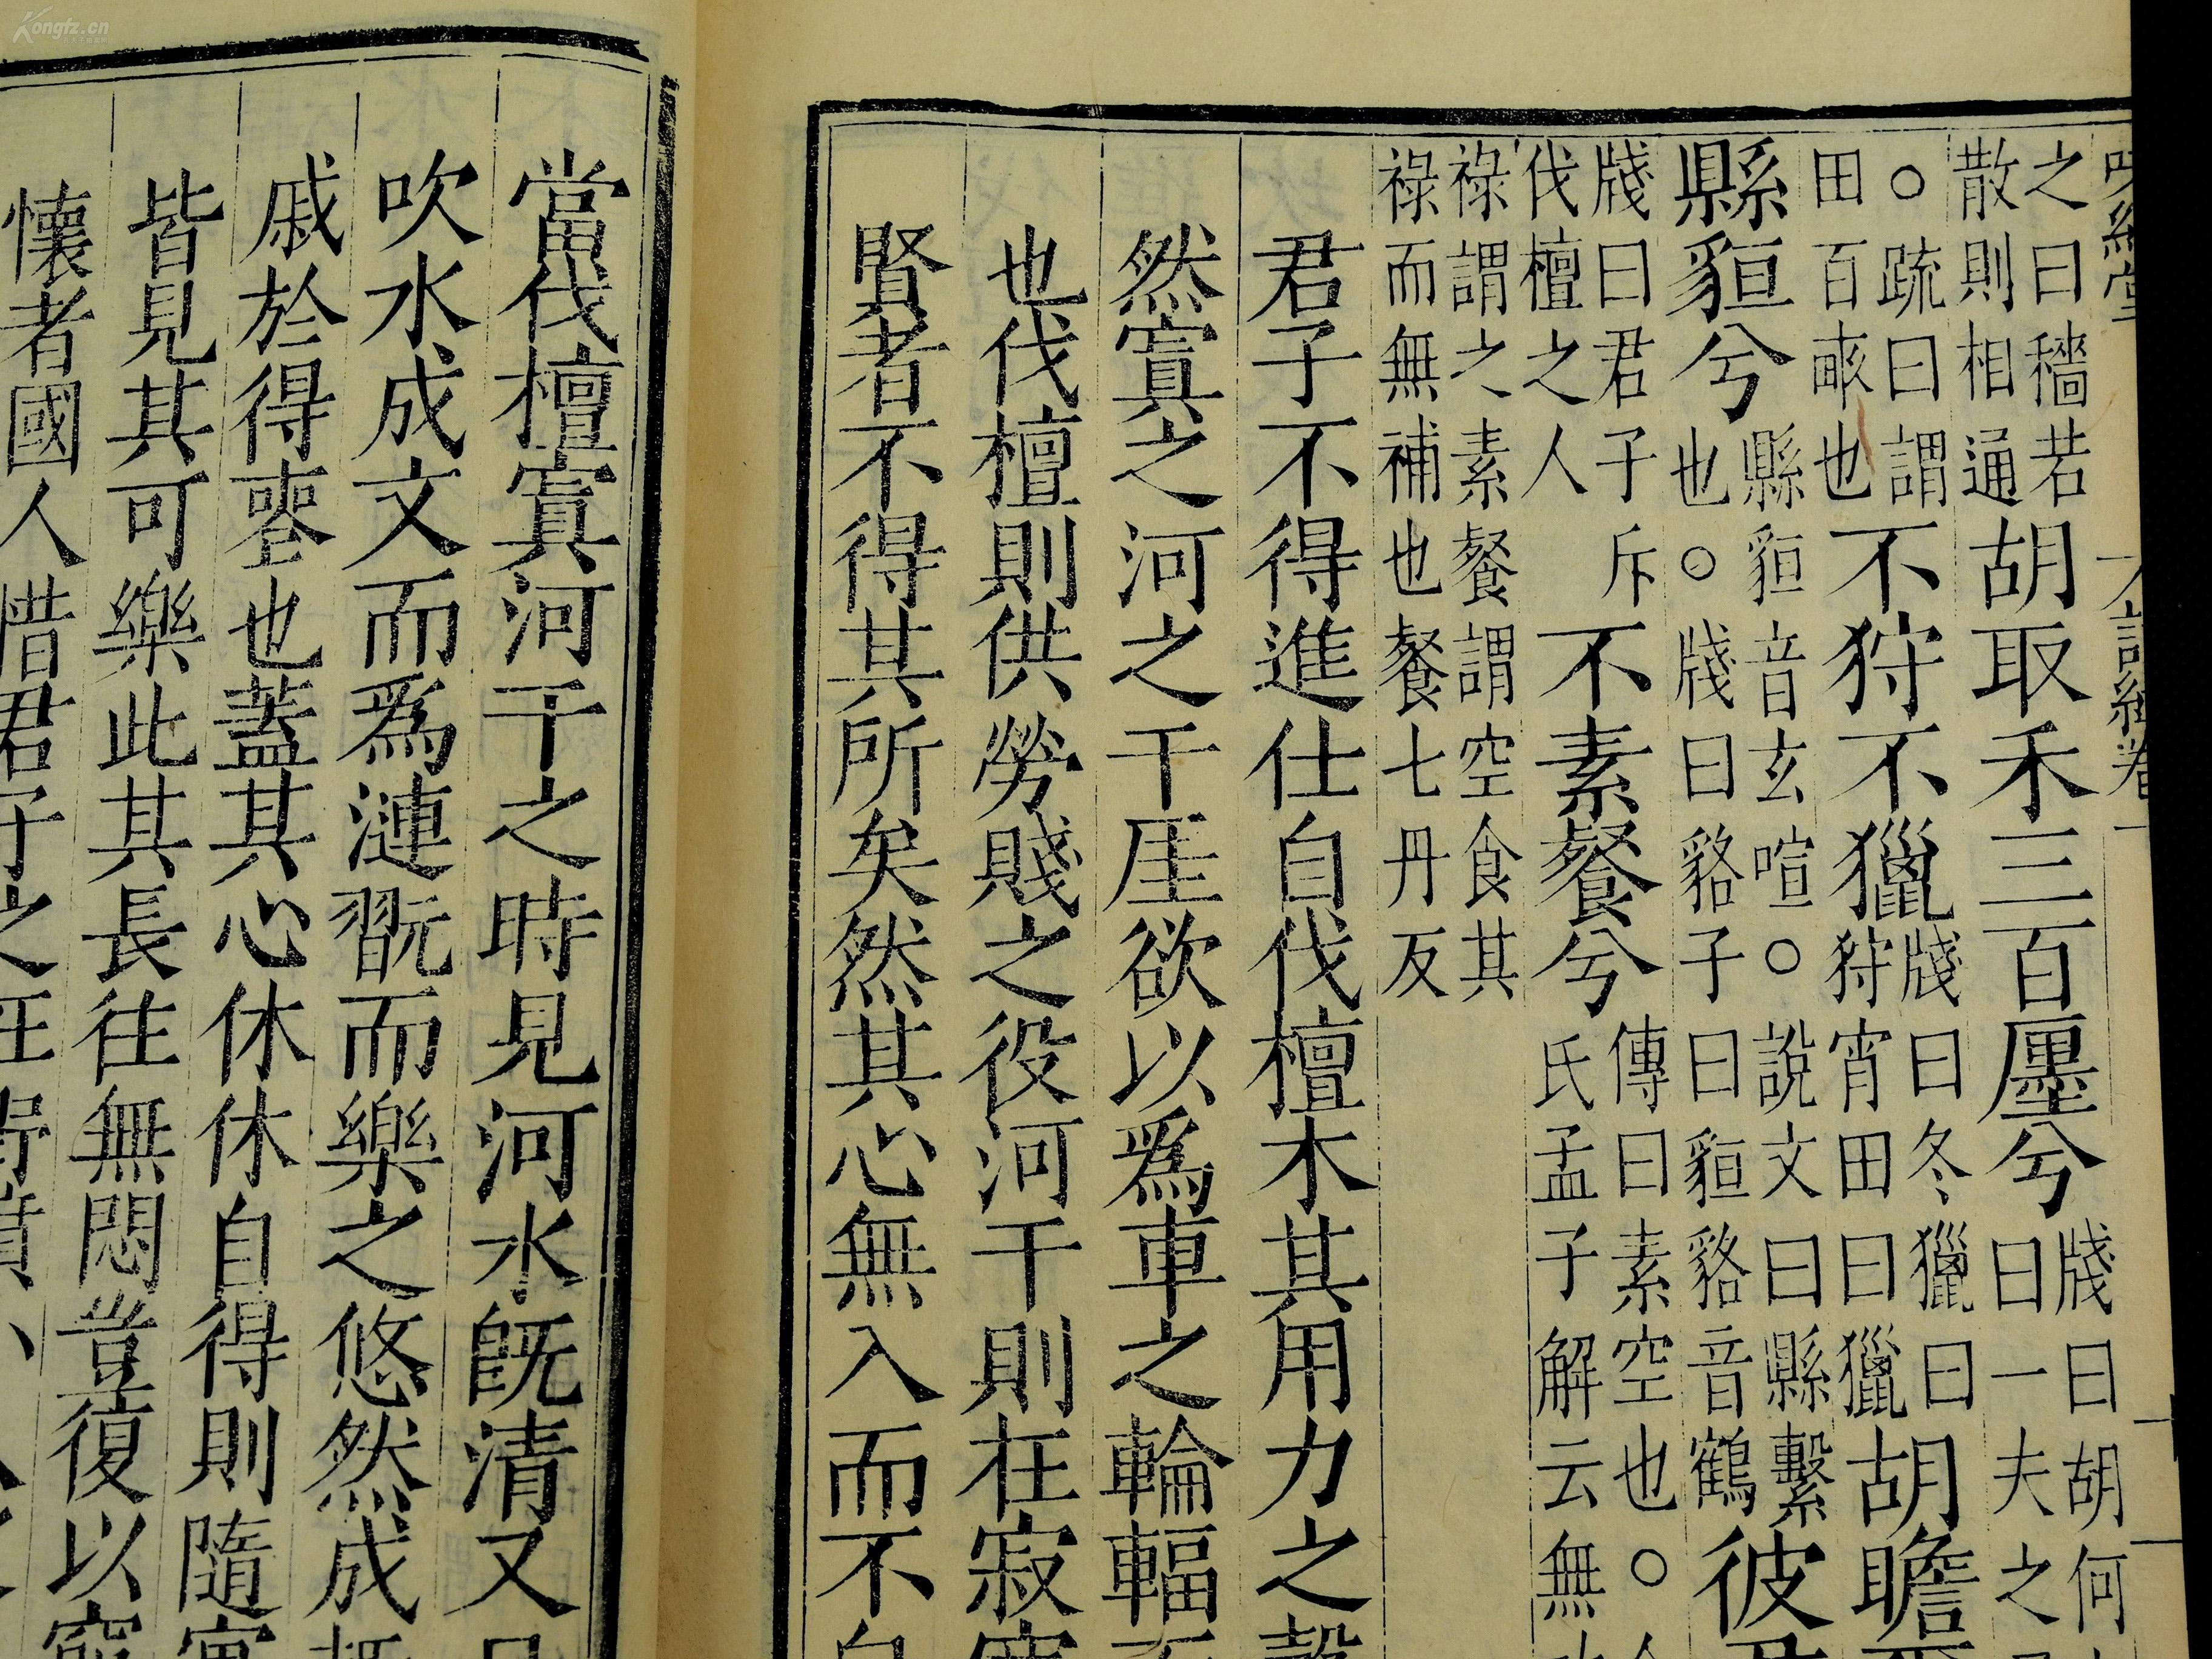 Kongfz.cn
經堂
詩經卷
之曰穡若
散則相通
胡取禾三百廛兮
牋曰胡何
曰一夫之
○疏曰謂
田百畮也
不狩不獵
牋曰冬獵曰
狩宵田曰獵
胡瞻
縣貆兮
縣貆音玄喧○說文曰縣繫
也○牋曰貉子曰貆貉音鶴
彼君
牋曰君子斥
伐檀之人
不素餐兮
傳曰素空也○
氏孟子解云無
祿謂之素餐謂空食其
祿而無補也餐七丹反
君子不得進仕自伐檀木其用力之
然寘之河之干厓欲以爲車之輪輻
也伐檀則供勞賤之役河干則在寂
賢者不得其所矣然其心無入而不自
當伐檀寘河干之時見河水旣清又
吹水成文而爲漣翫而樂之悠然成
戚於得喪也蓋其心休休自得則隨寓
皆見其可樂此其長往無悶豈復以窮
懷者國人惜君子之在野